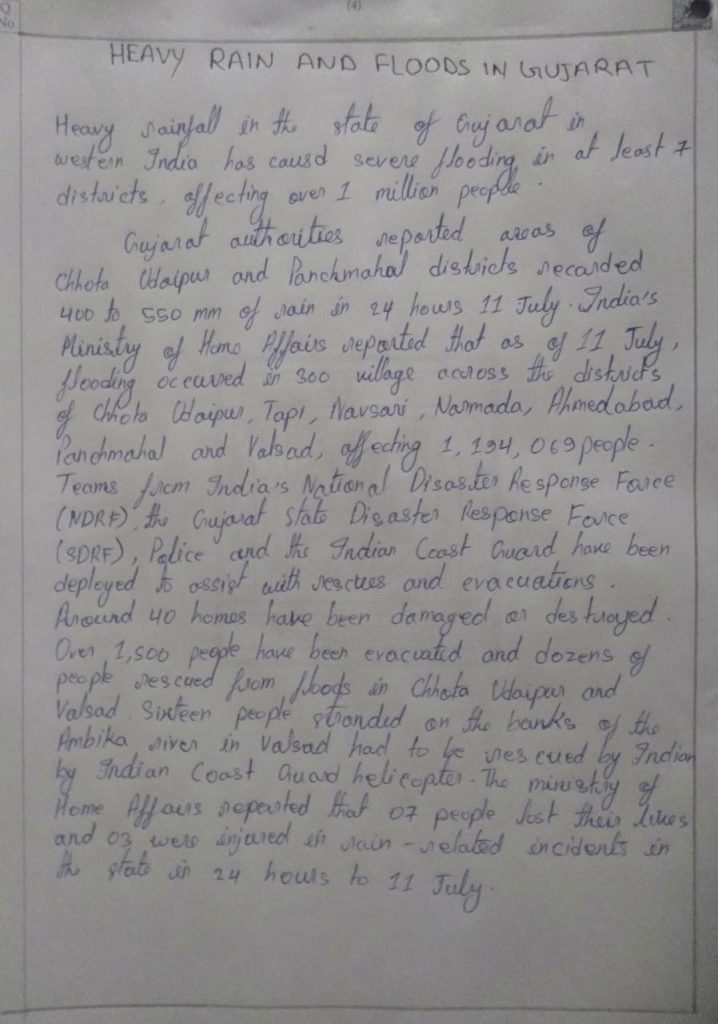 Q
No
(4)
HEAVY RAIN AND FLOODS IN GUJARAT
Heavy rainfall in the state of Gujarat in
western India has causd severe flooding in at least 7
districts, affecting over 1 million people.
Gujarat authorities reported areas of
Chhota Udaipur and Panchmahal districts recorded
400 to 550 mm of rain in 24 hours 11 July. India's
Ministry of Home Affairs reported that as of 11 July,
flooding occured in 300 village across the districts
of Chhota Udaipur, Tapi, Navsari, Narmada, Ahmedabad,
Panchmahal and Valsad, affecting 1,194,069 people.
Teams from India's National Disaster Response Force
(NDRF), the Gujarat State Disaster Response Force
(SDRF), Police and the Indian Coast Guard have been
deployed to assist with rescues and evacuations.
Around 40 homes have been damaged or destroyed.
Over 1,500 people have been evacuated and dozens of
people rescued from floods in Chhota Udaipur and
Valsad. Sixteen people stranded on the banks of the
Ambika river in Valsad had to be rescued by Indian
by Indian Coast Guard helicopter. The ministry of
Home Affairs reported that 07 people lost their lives
and 03 were injured in rain-related incidents in
the state in 24 hours to 11 July.